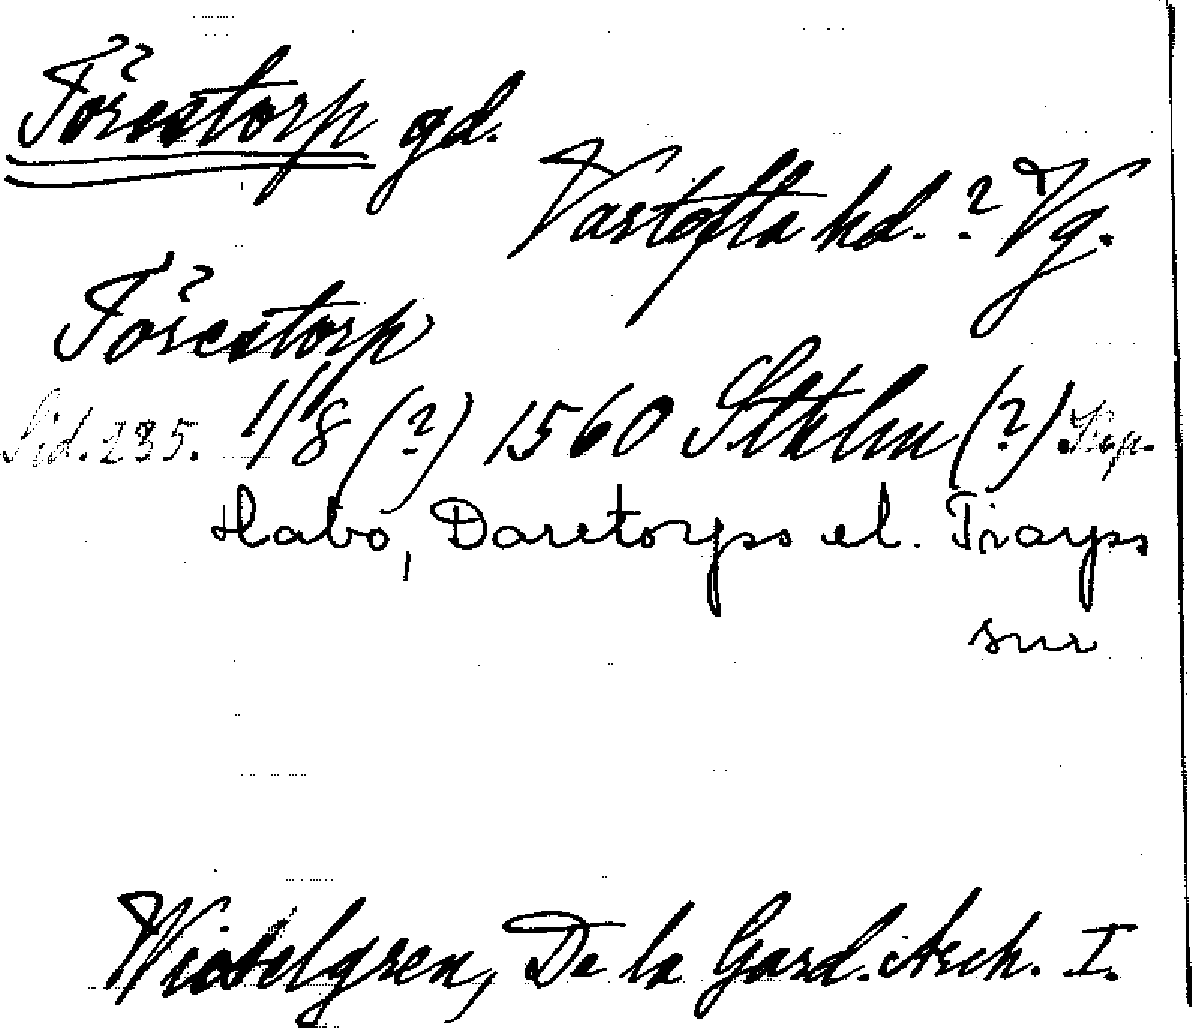 Förestorp gd.
Vartofta hd. ? Vg.
Förestorp
Sid. 235. 1/8 (?) 1560 Sthlm (?) Kop.
Habo, Daretorps el. Fiarps
snr
Wieselgren, De la Gard. Arch. I.